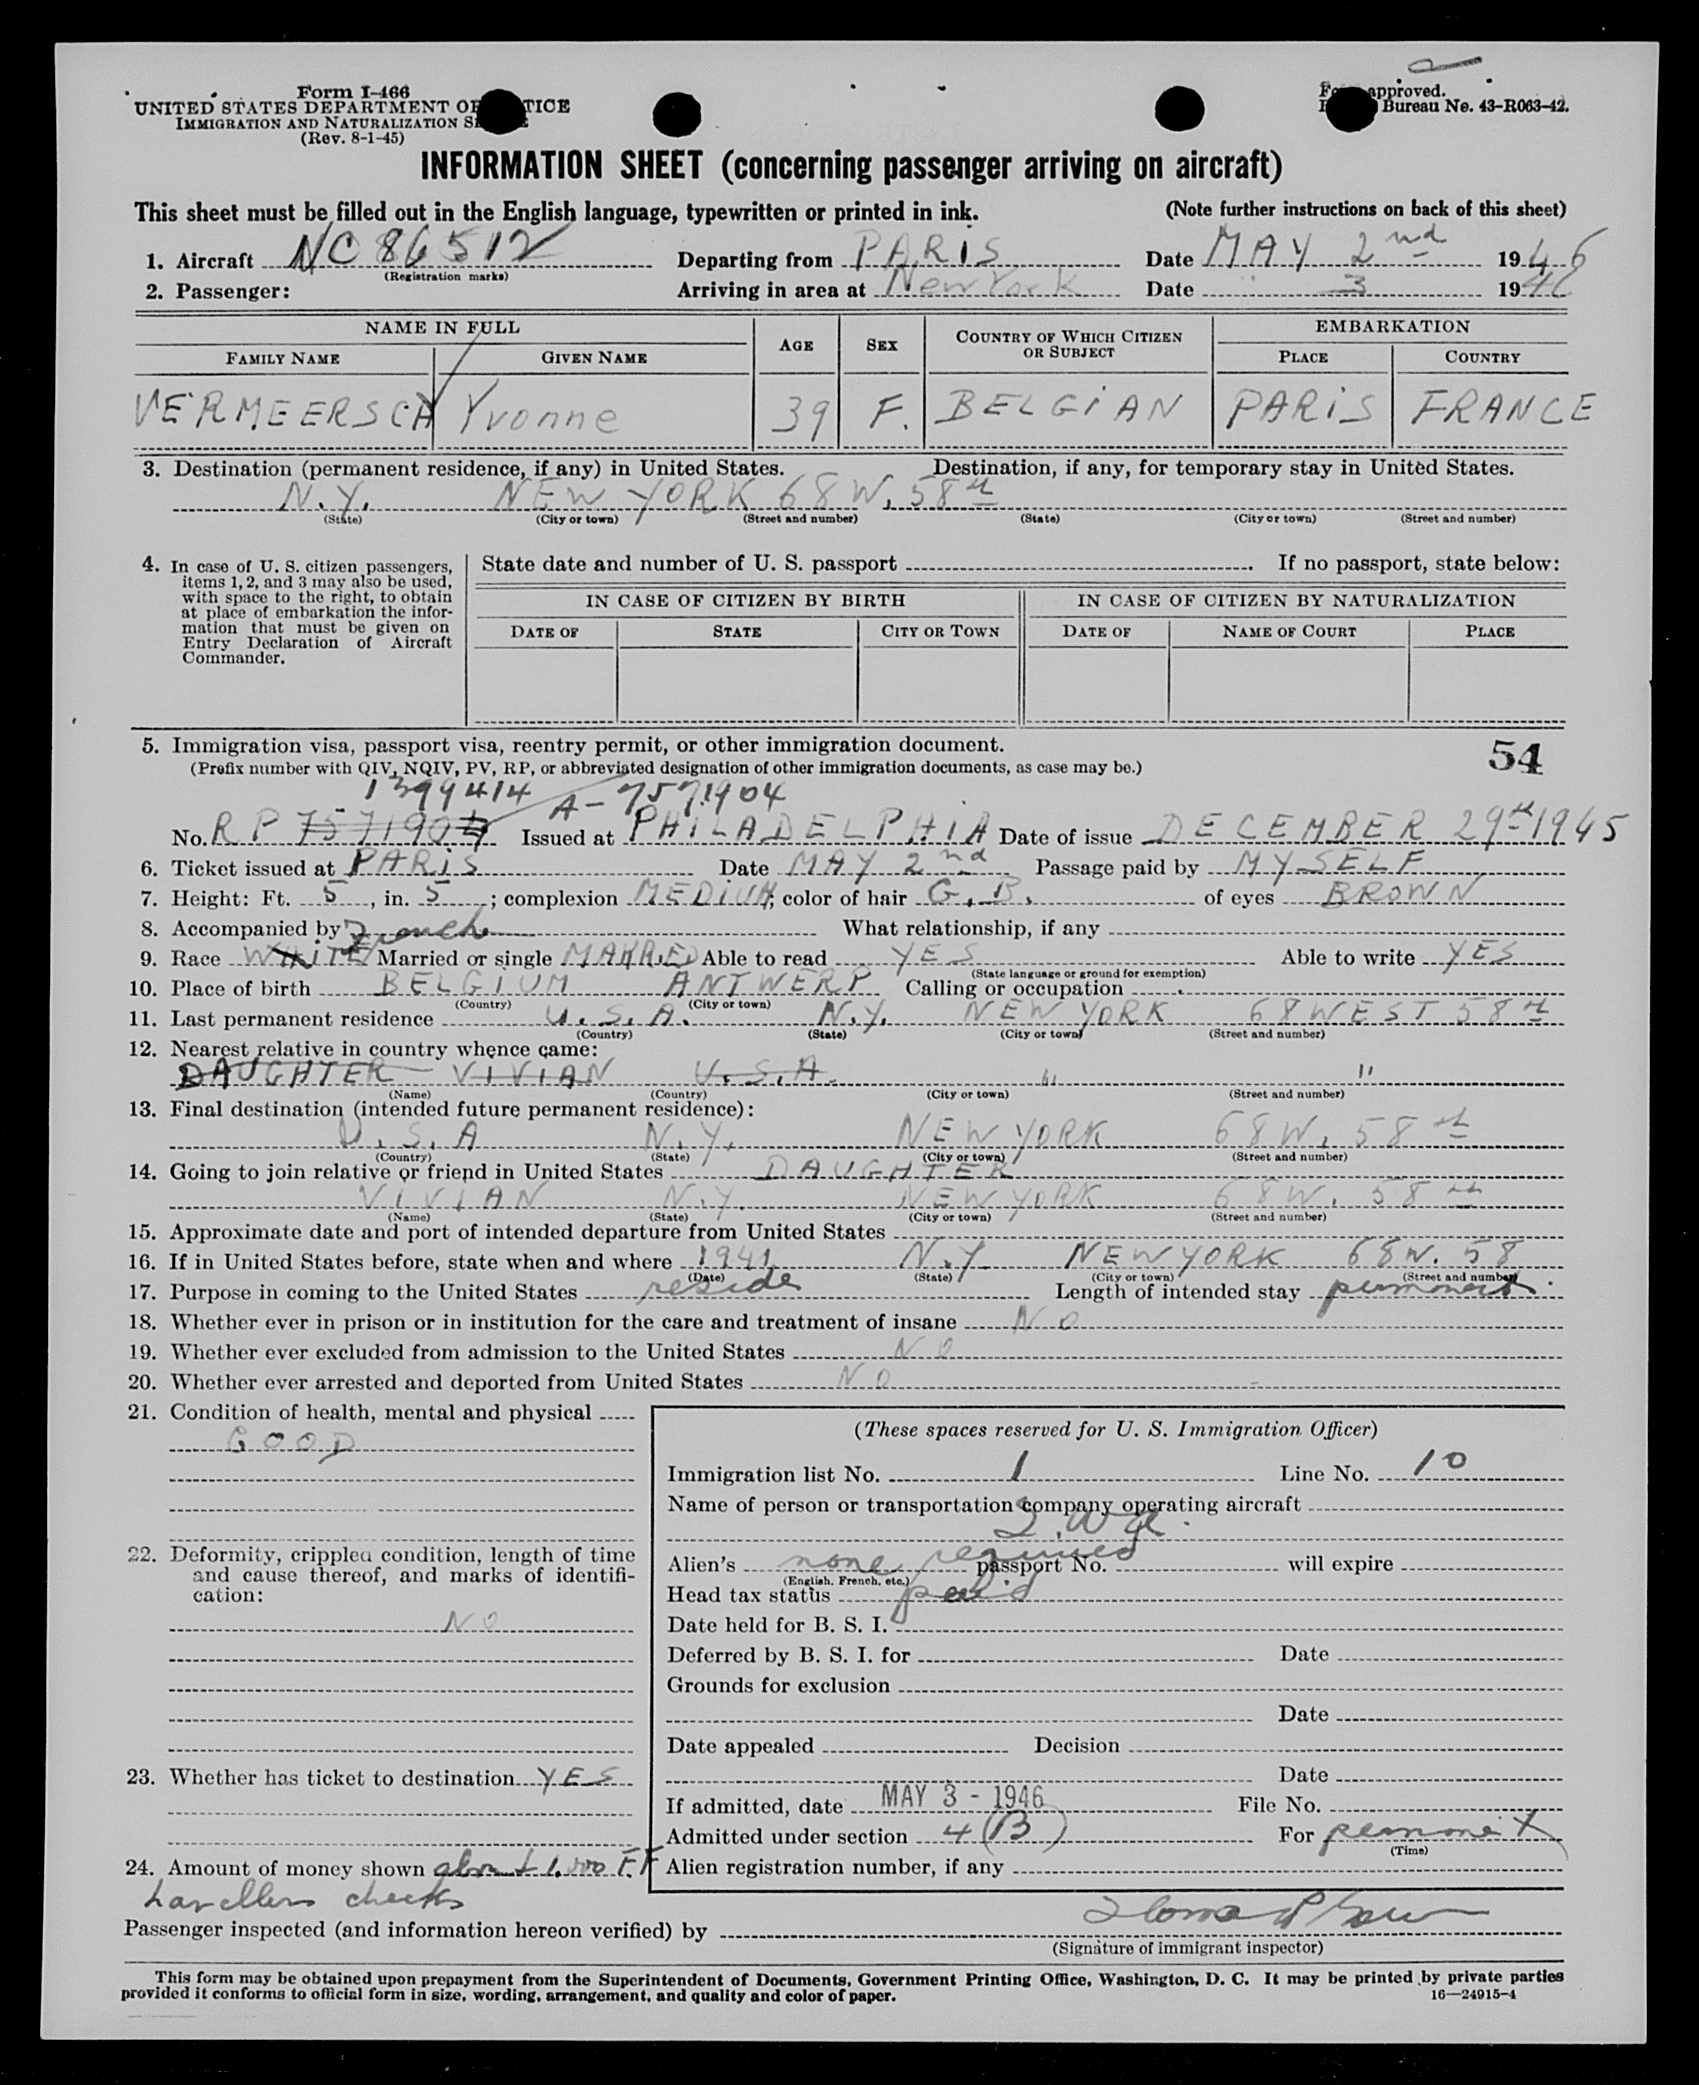 Form I-466
UNITED STATES DEPARTMENT OF JUSTICE
IMMIGRATION AND NATURALIZATION SERVICE
(Rev. 8-1-45)
Form approved.
Bureau No. 43-R063-42.
INFORMATION SHEET (concerning passenger arriving on aircraft)
This sheet must be filled out in the English language, typewritten or printed in ink. (Note further instructions on back of this sheet)
1. Aircraft NC 86512 Departing from PARIS Date MAY 2nd 1946
(Registration marks)
2. Passenger: Arriving in area at New York Date 3 1946
NAME IN FULL AGE SEX COUNTRY OF WHICH CITIZEN OR SUBJECT EMBARKATION
FAMILY NAME GIVEN NAME PLACE COUNTRY
VERMEERSCH Yvonne 39 F. BELGIAN PARIS FRANCE
3. Destination (permanent residence, if any) in United States. Destination, if any, for temporary stay in United States.
N.Y. NEW YORK 68 W. 58th
(State) (City or town) (Street and number) (State) (City or town) (Street and number)
4. In case of U. S. citizen passengers, items 1, 2, and 3 may also be used, with space to the right, to obtain at place of embarkation the information that must be given on Entry Declaration of Aircraft Commander.
State date and number of U. S. passport If no passport, state below:
IN CASE OF CITIZEN BY BIRTH IN CASE OF CITIZEN BY NATURALIZATION
DATE OF STATE CITY OR TOWN DATE OF NAME OF COURT PLACE
5. Immigration visa, passport visa, reentry permit, or other immigration document. 54
(Prefix number with QIV, NQIV, PV, RP, or abbreviated designation of other immigration documents, as case may be.)
1399414 A-7571904
No. RP 7571904 Issued at PHILADELPHIA Date of issue DECEMBER 29th 1945
6. Ticket issued at PARIS Date MAY 2nd Passage paid by MYSELF
7. Height: Ft. 5, in. 5; complexion MEDIUM; color of hair G.B. of eyes BROWN
8. Accompanied by What relationship, if any
French
9. Race WHITE Married or single MARRIED Able to read YES Able to write YES
(State language or ground for exemption)
10. Place of birth BELGIUM ANTWERP Calling or occupation
(Country) (City or town)
11. Last permanent residence U.S.A. N.Y. NEW YORK 68 WEST 58th
(Country) (State) (City or town) (Street and number)
12. Nearest relative in country whence came:
DAUGHTER VIVIAN U.S.A. " "
(Name) (Country) (City or town) (Street and number)
13. Final destination (intended future permanent residence):
U.S.A N.Y. NEW YORK 68 W. 58th
(Country) (State) (City or town) (Street and number)
14. Going to join relative or friend in United States DAUGHTER
VIVIAN N.Y. NEW YORK 68 W. 58th
(Name) (State) (City or town) (Street and number)
15. Approximate date and port of intended departure from United States
16. If in United States before, state when and where 1941 N.Y. NEW YORK 68 W. 58
(Date) (State) (City or town) (Street and number)
17. Purpose in coming to the United States reside Length of intended stay permanent
18. Whether ever in prison or in institution for the care and treatment of insane NO
19. Whether ever excluded from admission to the United States NO
20. Whether ever arrested and deported from United States NO
21. Condition of health, mental and physical
GOOD
22. Deformity, crippled condition, length of time and cause thereof, and marks of identification:
NO
23. Whether has ticket to destination YES
24. Amount of money shown about 1,000 F.F
travellers checks
(These spaces reserved for U. S. Immigration Officer)
Immigration list No. 1 Line No. 10
Name of person or transportation company operating aircraft
T.W.A.
Alien's none required passport No. will expire
(English, French, etc.)
Head tax status paid
Date held for B. S. I.
Deferred by B. S. I. for Date
Grounds for exclusion
Date
Date appealed Decision
Date
If admitted, date MAY 3 - 1946 File No.
Admitted under section 4(B) For permanent
(Time)
Alien registration number, if any
Passenger inspected (and information hereon verified) by
(Signature of immigrant inspector)
This form may be obtained upon prepayment from the Superintendent of Documents, Government Printing Office, Washington, D. C. It may be printed by private parties
provided it conforms to official form in size, wording, arrangement, and quality and color of paper. 16—24915-4